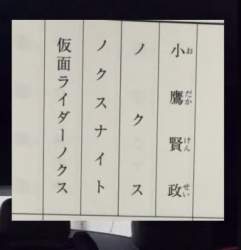 小鷹賢政
おだかけんせい
ノクス
ノクスナイト
仮面ライダーノクス